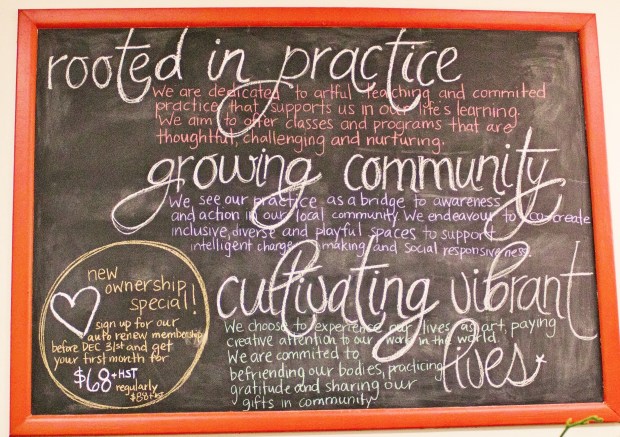 rooted in practice
We are dedicated to artful teaching and commited
practice that supports us in our life's learning.
We aim to offer classes and programs that are
thoughtful, challenging and nurturing.
growing community
We see our practice as a bridge to awareness
and action in our local community. We endeavour to co-create
inclusive, diverse and playful spaces to support
intelligent change making and social responsiveness.
cultivating vibrant
lives*
We choose to experience our lives as art, paying
creative attention to our work in the world.
We are commited to
befriending our bodies, practicing
gratitude and sharing our
gifts in community
new
ownership
special!
sign up for our
auto renew membership
before DEC 31st and get
your first month for
$68+HST
regularly
$88+HST